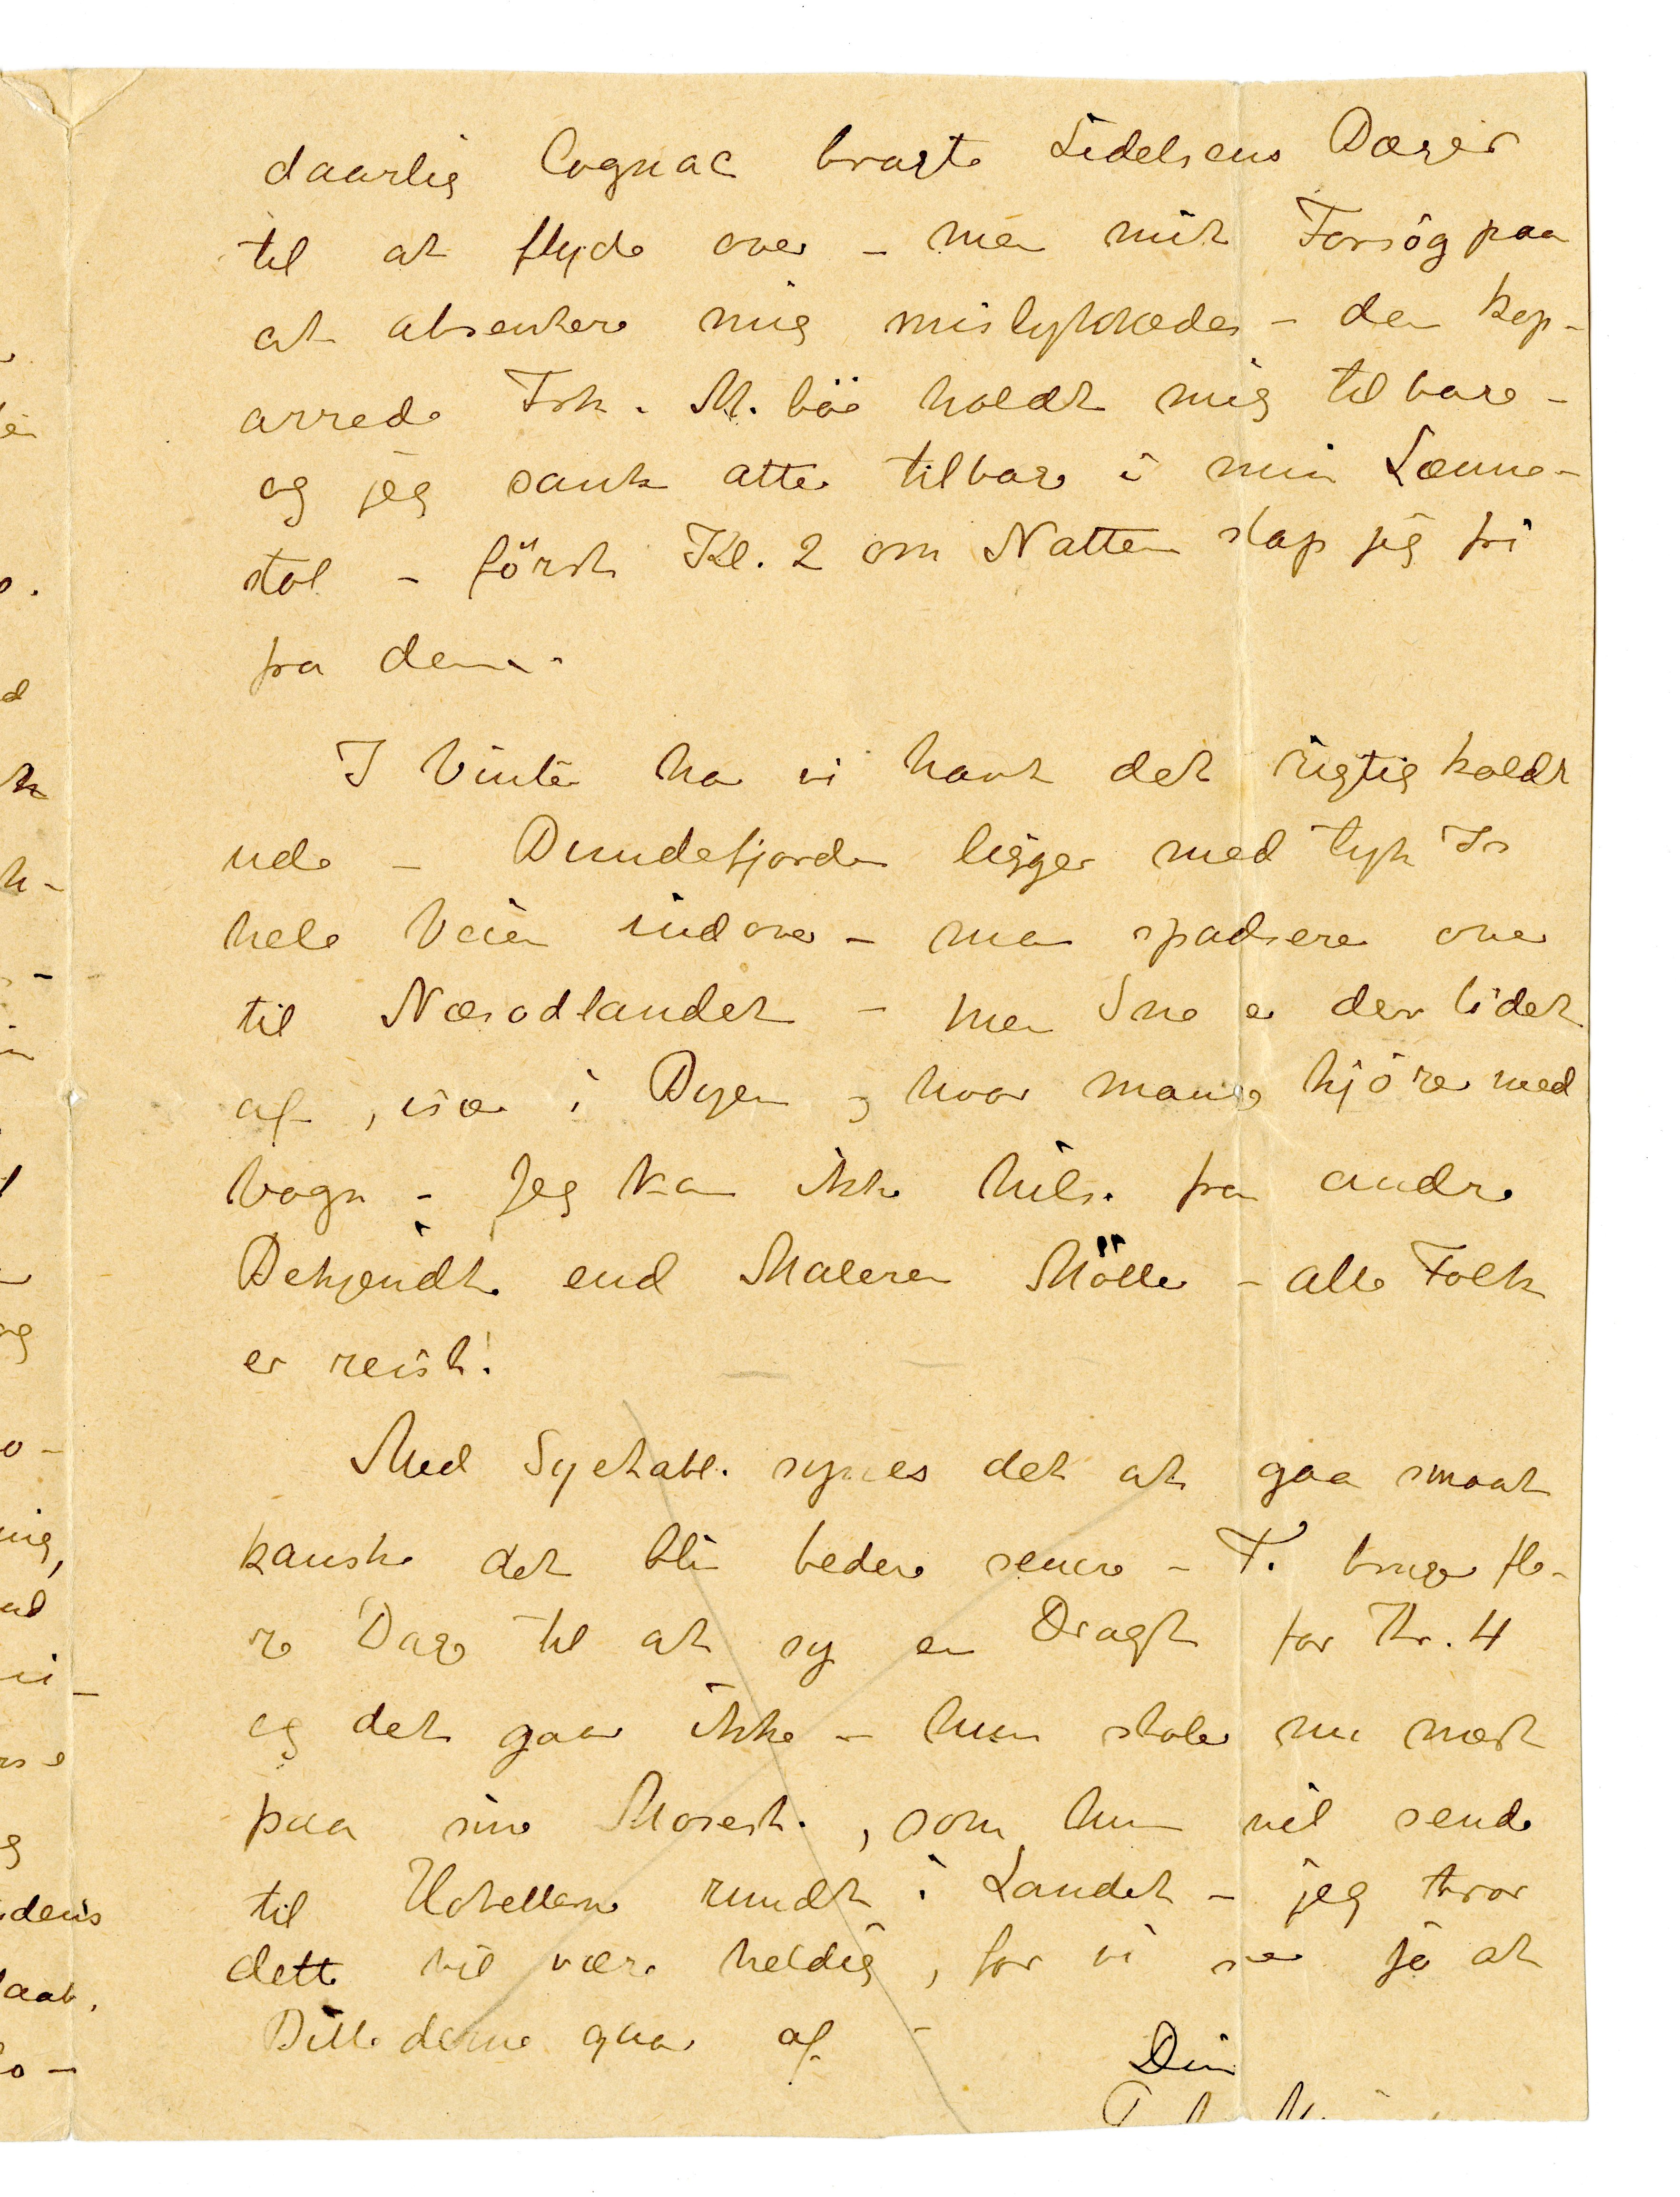 daarlig Cognac bragte Lidelsens Bæger
til at flyde over – men mit Forsøg paa
at absentere mig mislykkedes – den kop-
arrede Frk. M. holdt mig tilbage –
og jeg sank atter tilbage i min Læne-
stol – först Kl. 2 om Natten slap jeg fri
fra dem.
I Vinter har vi havt det rigtig koldt
ude – Bundefjorden ligger med tyk Is
hele Veien indover – man spadserer over
til Næsodlandet – men Sne er der lidet
af, især i Byen, hvor mange kjörer med
Vogn – Jeg kan ikke hilse fra andre
Bekjendte end Maleren Möller – alle Folk
er reist!
Med Syetabl. synes det at gaa smaat
kanske det blir bedre senere – T. bruger fle-
re Dage til at sy en Dragt for Kr. 4
og det gaar ikke – hun stoler nu mest
paa sine , som hun vil sende
til Hotellerne rundt i Landet – jeg tror
dette vil være heldig, for vi ser jo at
Billederne gaar af –
Din